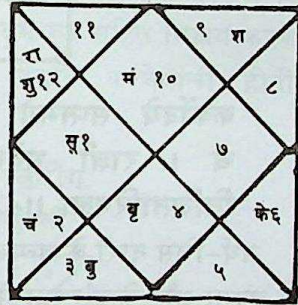 ११ ९ श
रा
शु१२ मं १० ८
सू१ ७
चं २ बृ ४ के६
३ बु ५